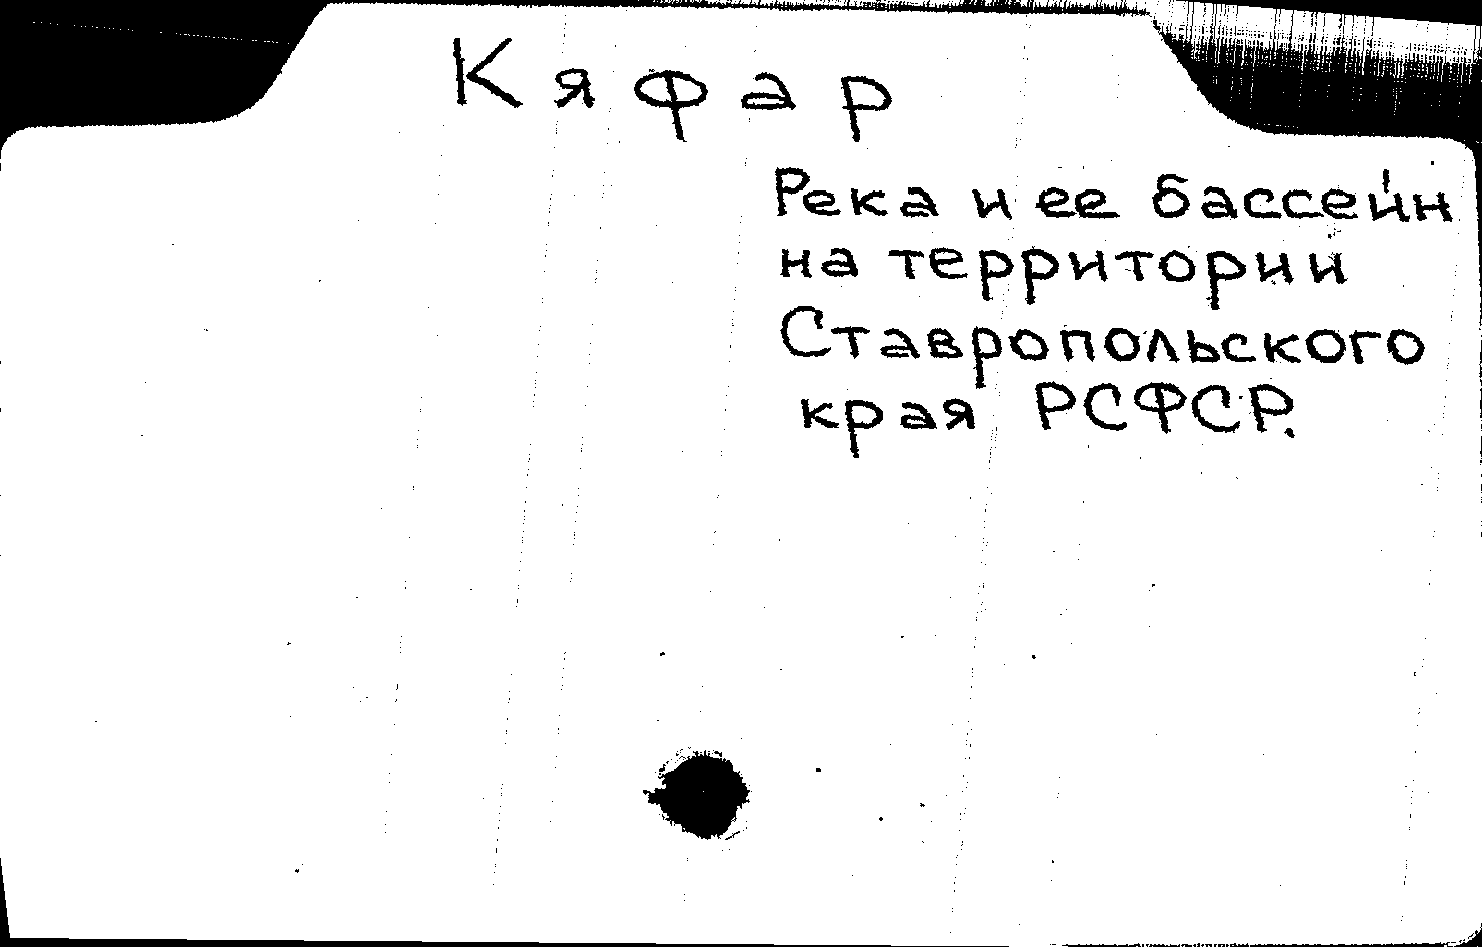 Кяфар
Река и ее бассейн
на территории
Ставропольского
края РСФСР.